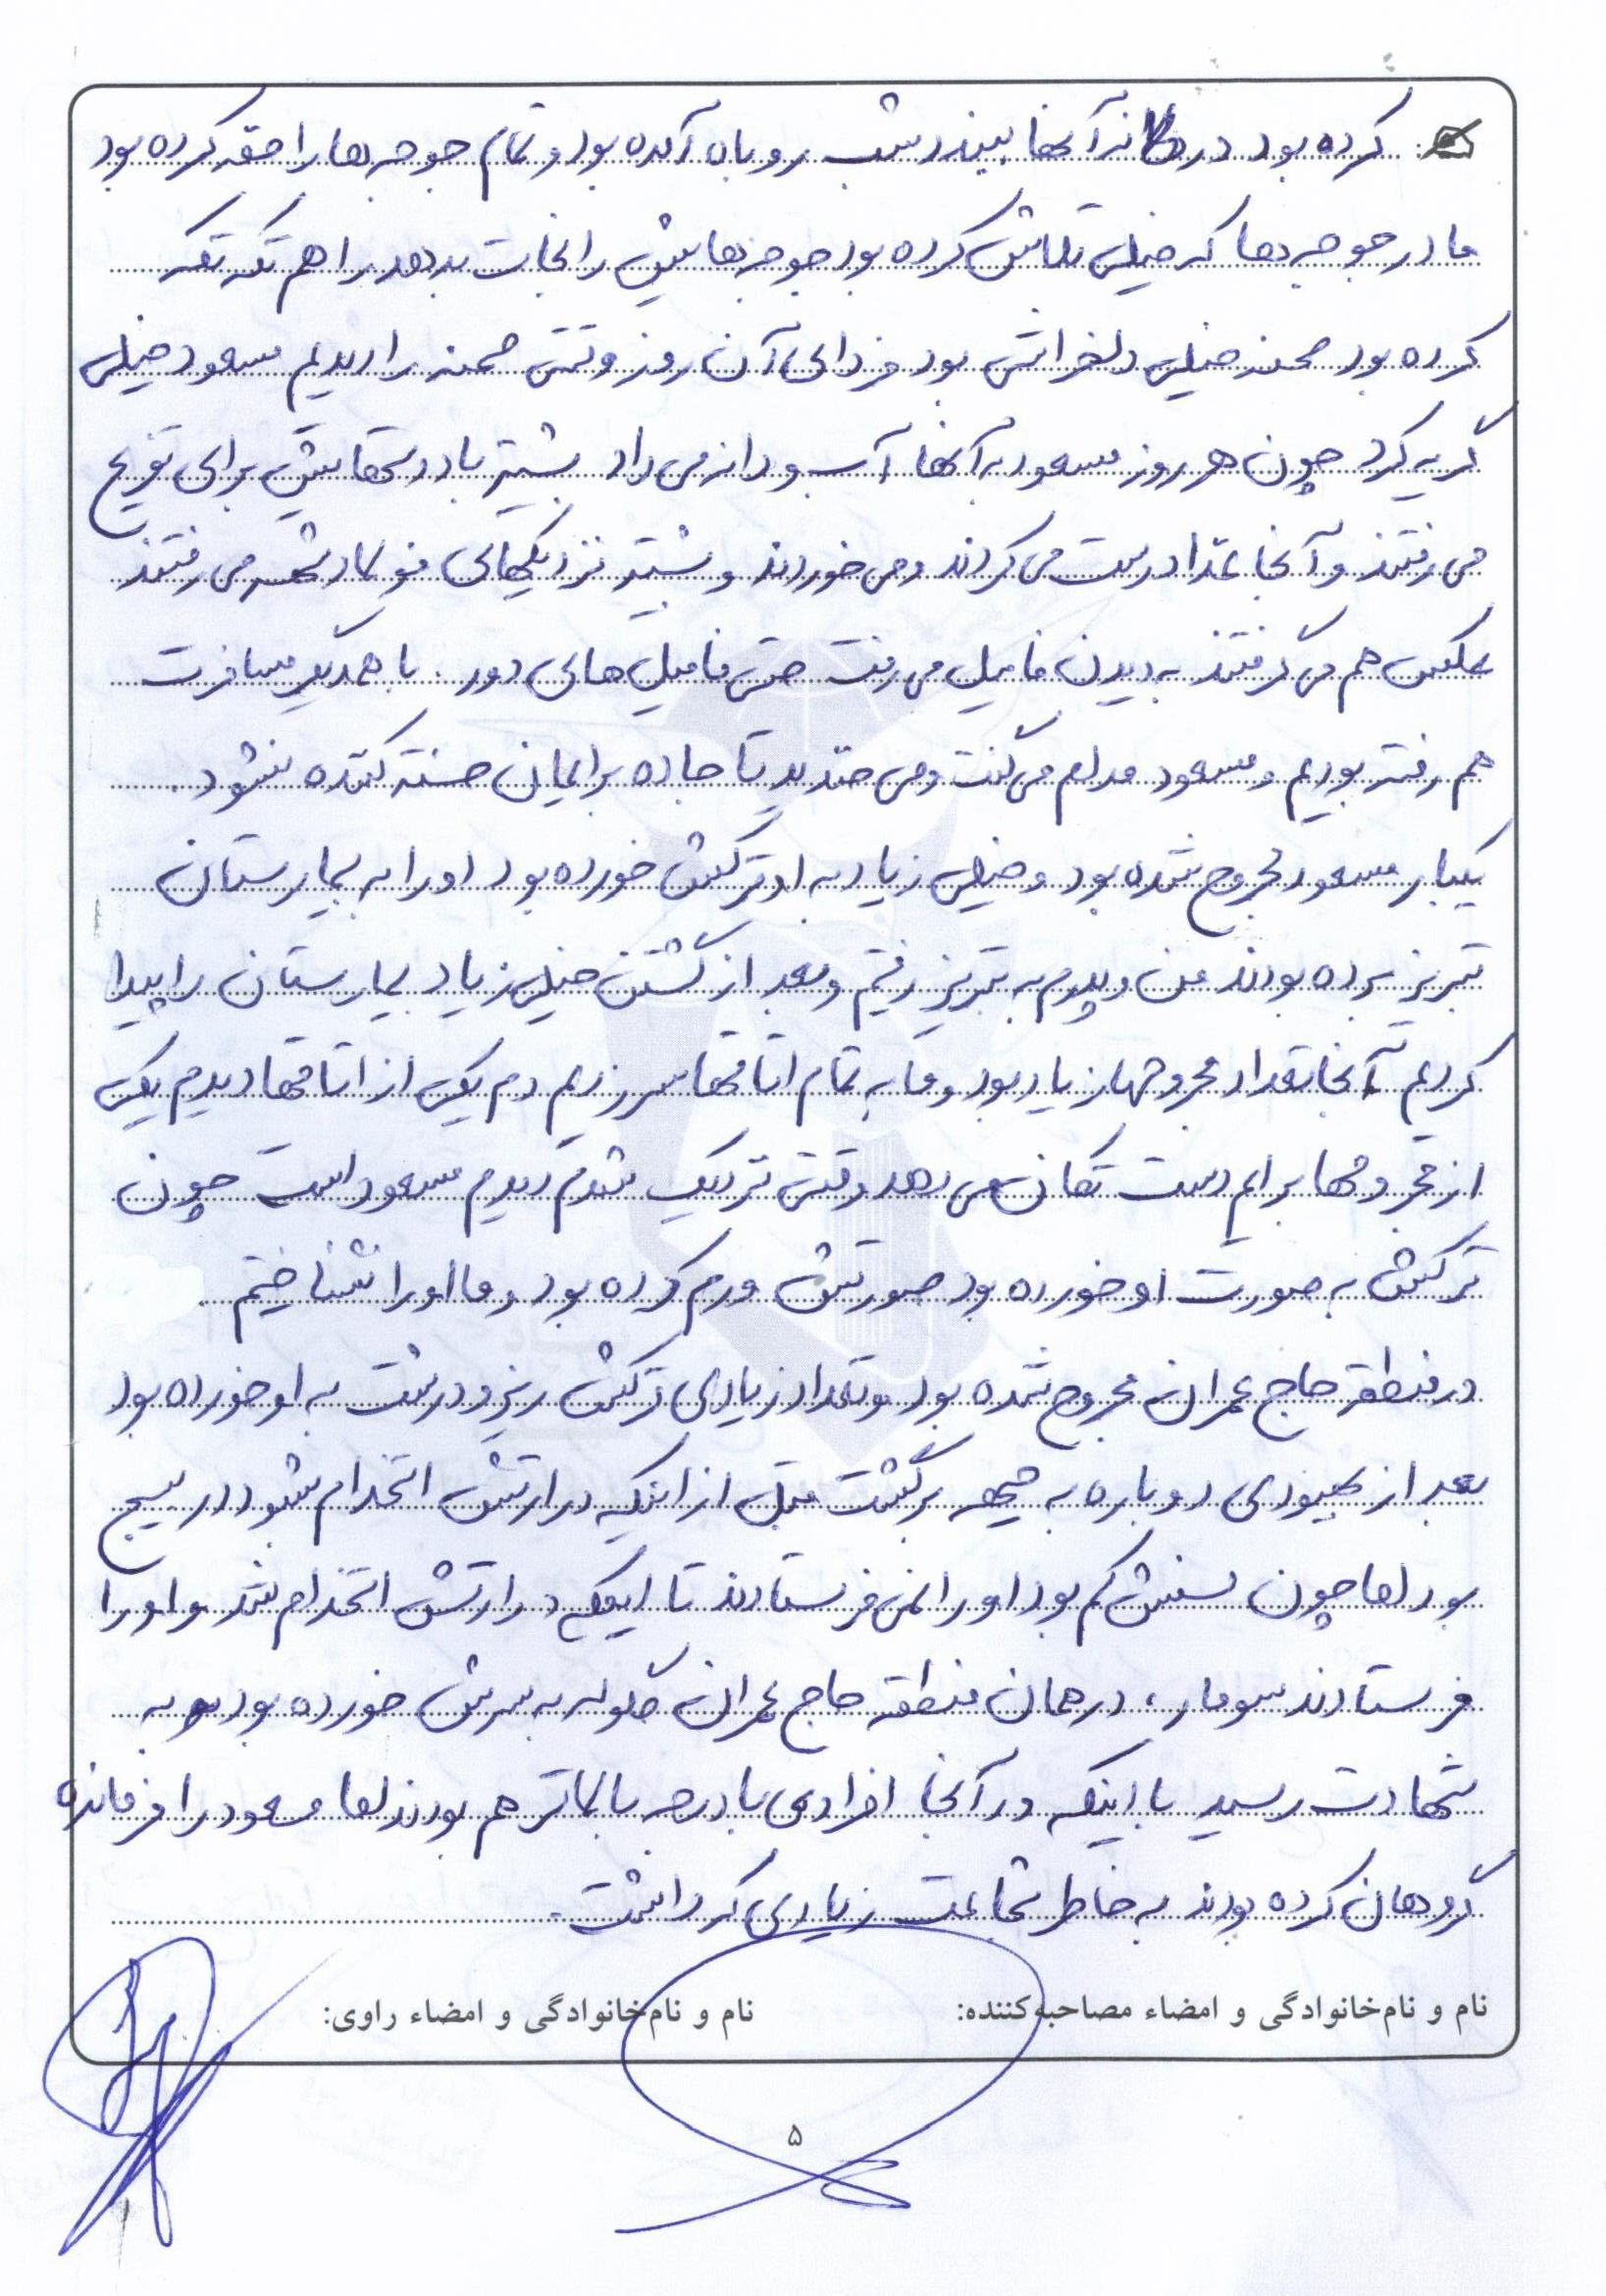 کرده بود در لانه آنها ببندد شب روباه آمده بود و تمام جوجه ها را خفه کرده بود
مادر جوجه ها که خیلی تلاش کرده بود جوجه هایش را نجات بدهد را هم تکه تکه
کرده بود صحنه خیلی دلخراشی بود فردای آن روز وقتی صحنه را دیدیم مسعود خیلی
گریه کرد چون هر روز مسعود به آنها آب و دانه می داد بیشتر با دوستهایش برای تفریح
می رفتند و آنجا غذا درست می کردند و می خوردند و بیشتر نزدیکیهای فولادشهر می رفتند
عکس هم می گرفتند به دیدن فامیل می رفت حتی فامیل های دور . با همدیگر مسافرت
هم رفته بودیم و مسعود مدام می گفت و می خندید تا جاده برایمان خسته کننده نشود .
یکبار مسعود مجروح شده بود و خیلی زیاد به او ترکش خورده بود او را به بیمارستان
تبریز برده بودند من و پدرم به تبریز رفتیم و بعد از گشتن خیلی زیاد بیمارستان را پیدا
کردیم آنجا تعداد مجروحها زیاد بود و ما به تمام اتاقها سر زدیم دم یکی از اتاقها دیدم یکی
از مجروحها برایم دست تکان می دهد وقتی نزدیک شدم دیدم مسعود است چون
ترکش به صورت او خورده بود صورتش ورم کرده بود و ما او را نشناختیم .
در منطقه حاج عمران مجروح شده بود و تعداد زیادی ترکش ریز و درشت به او خورده بود
بعد از بهبودی دوباره به جبهه برگشت قبل از اینکه در ارتش استخدام شود در بسیج
بود اما چون سنش کم بود او را نمی فرستادند تا اینکه در ارتش استخدام شد و او را
فرستادند سومار ، در همان منطقه حاج عمران گلوله به سرش خورده بود و به
شهادت رسید با اینکه در آنجا افرادی با درجه بالاتر هم بودند اما مسعود را فرمانده
گروهان کرده بودند به خاطر شجاعت زیادی که داشت .
نام و نام خانوادگی و امضاء مصاحبه کننده: نام و نام خانوادگی و امضاء راوی:
۵